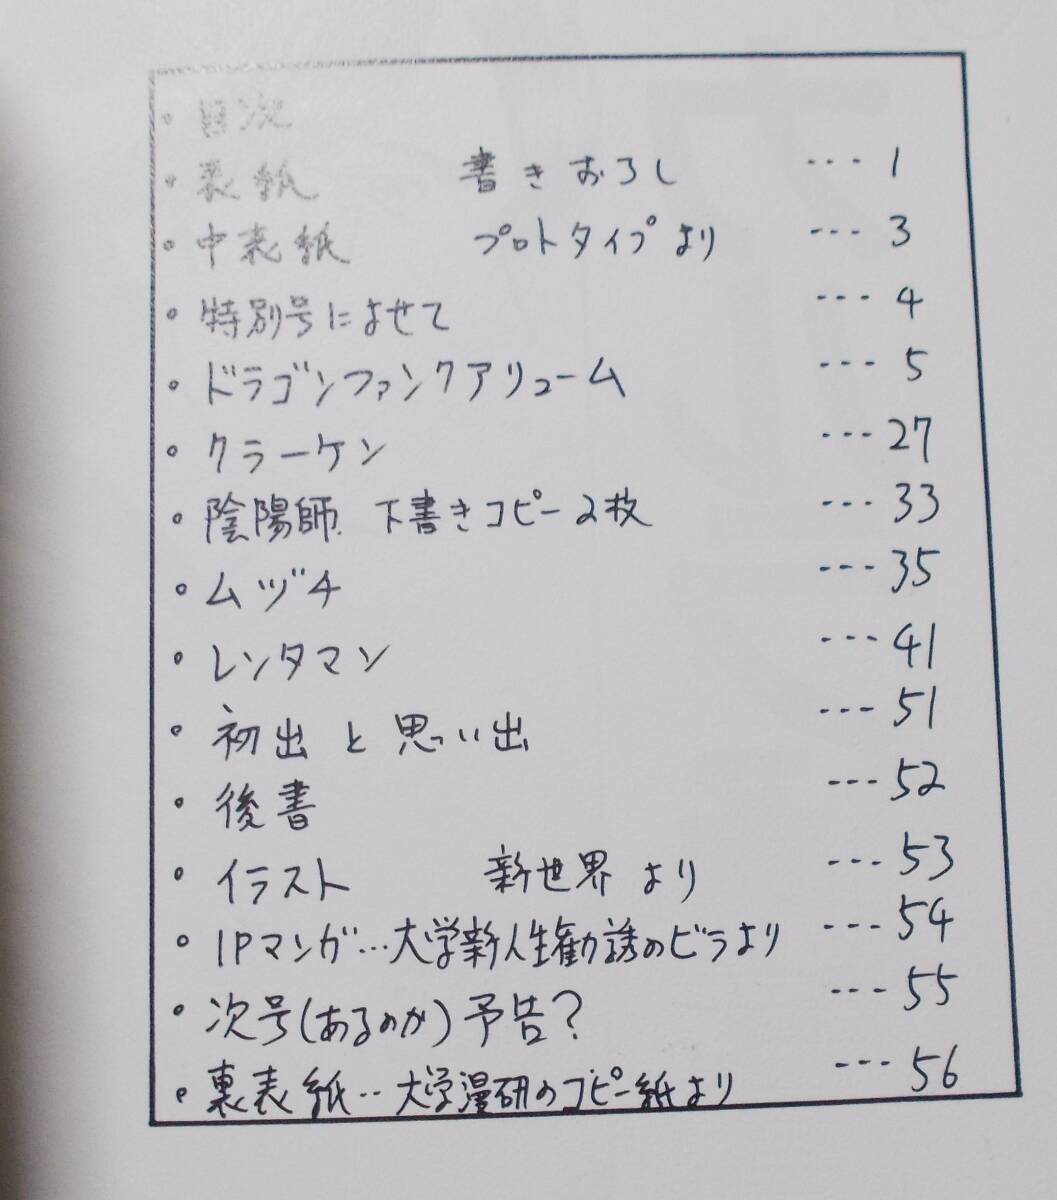 ・目次
・表紙 書きおろし ---1
・中表紙 プロトタイプより ---3
・特別号によせて ---4
・ドラゴンファンクアリューム ---5
・クラーケン ---27
・陰陽師.下書きコピー2枚 ---33
・ムヅチ ---35
・レンタマン ---41
・初出と思い出 ---51
・後書 ---52
・イラスト 新世界より ---53
・1Pマンガ…大学新人生勧誘のビラより ---54
・次号(あるのか)予告? ---55
・裏表紙‥大学漫研のコピー紙より ---56